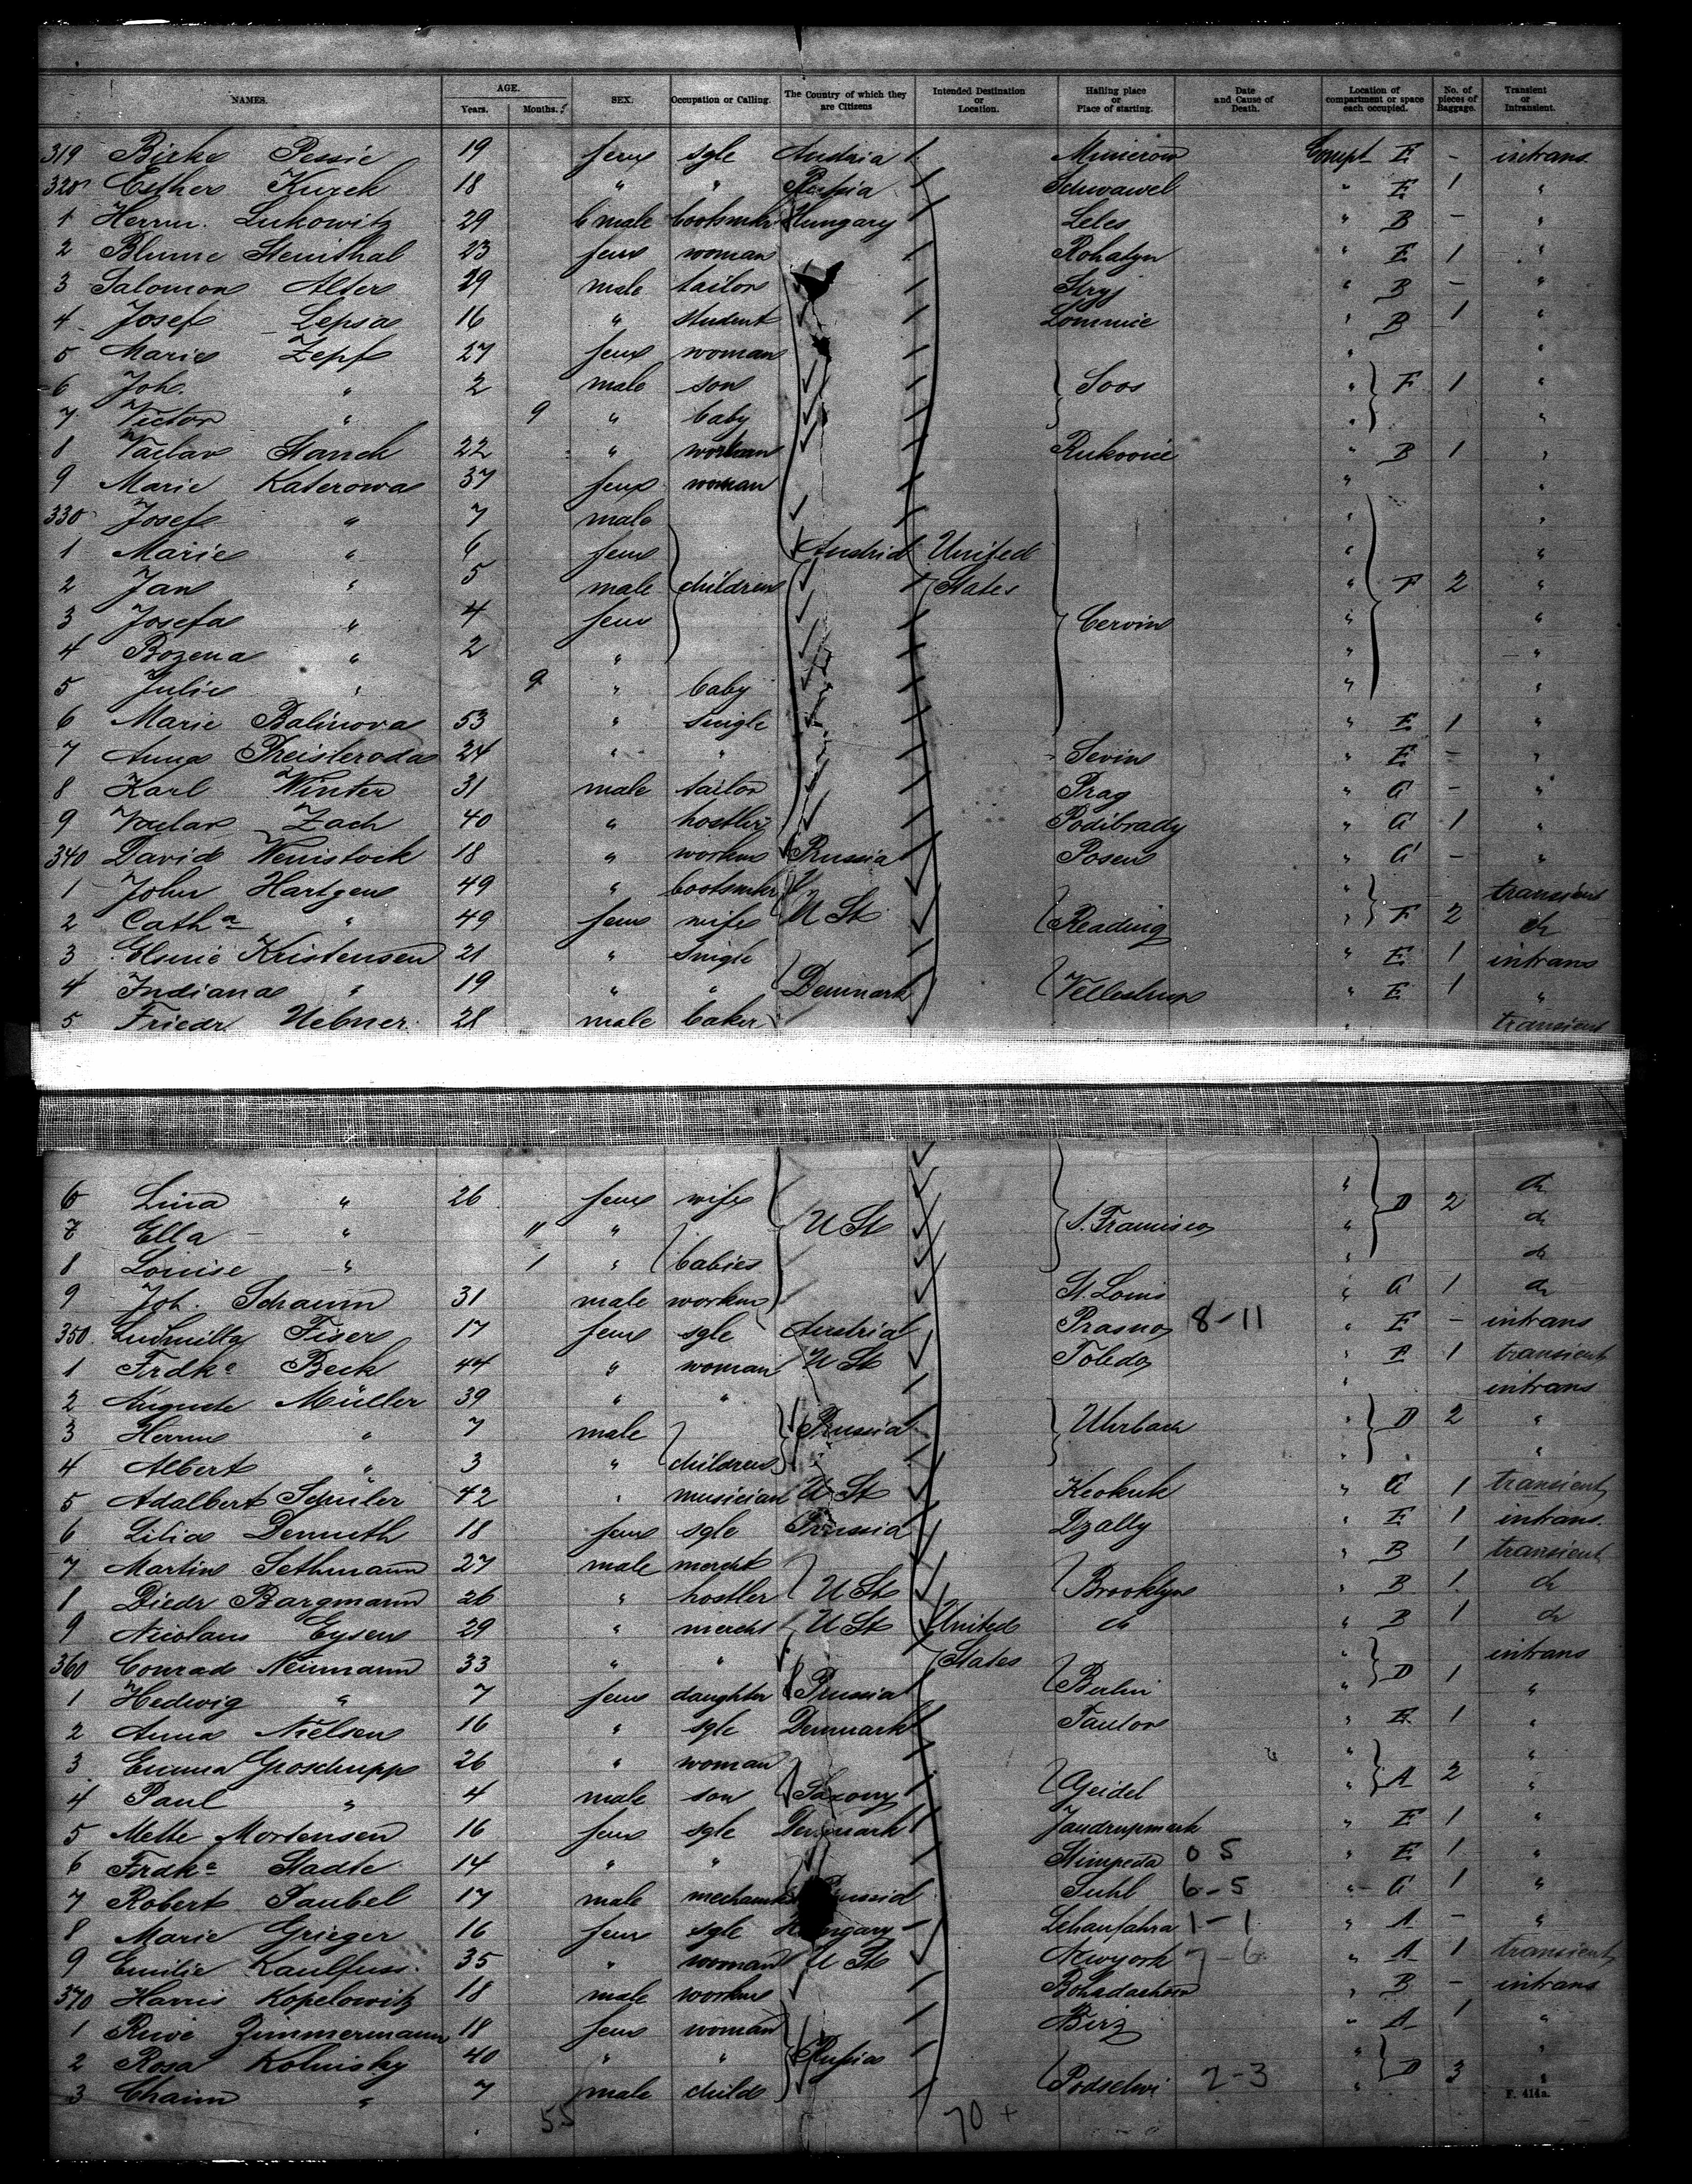 NAMES. AGE. Years. Months. SEX. Occupation or Calling. The Country of which they are Citizens Intended Destination or Location. Hailing place or Place of starting. Date and Cause of Death. Location of compartment or space each occupied. No. of pieces of Baggage. Transient or Intransient.
319 Birke Pessie 19 fem sgle Austria Compt E - intrans
320 Esther Kurek 18 " " Russia " E 1 "
1 Herrm. Lukowitz 29 male bootmkr Hungary Leles " B - "
2 Blume Steinthal 23 fem woman Rohatyn " E 1 "
3 Salomon Alter 29 male tailor Stryj " B - "
4 Josef Lepsa 16 " student Lomnice " B 1 "
5 Marie Zepf 27 fem woman " "
6 Joh. " 2 male son Soos " F 1 "
7 Victor " 9 " baby " "
8 Vaclav Stanek 22 " workman " B 1 "
9 Marie Katerowa 37 fem woman " "
330 Josef " 7 male " "
1 Marie " 6 fem Austria United " "
2 Jan " 5 male children States " F 2 "
3 Josefa " 4 fem Cervin " "
4 Bozena " 2 " " "
5 Julie " 9 " baby " "
6 Marie Balinova 53 " single " E 1 "
7 Anna 24 " " Sevin " E - "
8 Karl Winter 31 male tailor Prag " G - "
9 Vaclav Zach 40 " hostler Podibrady " G 1 "
340 David Weinstock 18 " workm Prussia Posen " G - "
1 John Hartgen 49 " bootmkr " transient
2 Catha " 49 fem wife U St Reading " F 2 do
3 Kristensen 21 " Single " E 1 intrans
4 Indiana " 19 " " Denmark Vellestrup " E 1 "
5 Friedr Uebner 28 male baker transient
6 Lina " 26 fem wife " D 2 do
7 Ella " 11 " U St S. Francisco " do
8 Louise " 1 " babies " do
9 Joh. Schaum 31 male workm St. Louis " G 1 do
350 Ludmilla Fiser 17 fem sgle Austria 8-11 " E - intrans
1 Frdke Beck 44 " woman U St Toledo " E 1 transient
2 Auguste Müller 39 " " " intrans
3 Herrm " 7 male Prussia Uhrbach " D 2 "
4 Albert " 3 " children " "
5 Adalbert Schuler 42 " musician U St Keokuk " G 1 transient
6 Lilia Demuth 18 fem sgle Prussia Dzally " E 1 intrans.
7 Martin Sethmann 27 male mercht " B 1 transient
8 Diedr Bargmann 26 " hostler U St Brooklyn " B 1 do
9 Nicolaus Eysen 29 " mercht U St United do " B 1 do
360 Conrad Neumann 33 " " States " intrans
1 Hedwig " 7 fem daughter Prussia Berlin " D 1 "
2 Anna Nielsen 16 " sgle Denmark " E 1 "
3 Emma Groschupp 26 " woman " "
4 Paul " 4 male son Saxony Geidel " A 2 "
5 Mette Mortensen 16 fem sgle Denmark Jandrupmark " E 1 "
6 Frdke Stadte 14 " " Stimpeda 0 5 " E 1 "
7 Robert Taubel 17 male mechanic Prussia Suhl 6-5 " G 1 "
8 Marie Grieger 16 fem sgle Hungary 1-1 " A - "
9 Emilie Kaulfuss 35 " woman U St Newyork 7-6 " A 1 transient
370 Harris Kopelowitz 18 male workm " B - intrans
1 Zimmermann 18 fem woman Birz " A 1 "
2 Rosa Kolnisky 40 " " Russia " D 3 "
3 Chaim " 7 male child Podselwi 2-3 " "
F. 414a.
55 70 +